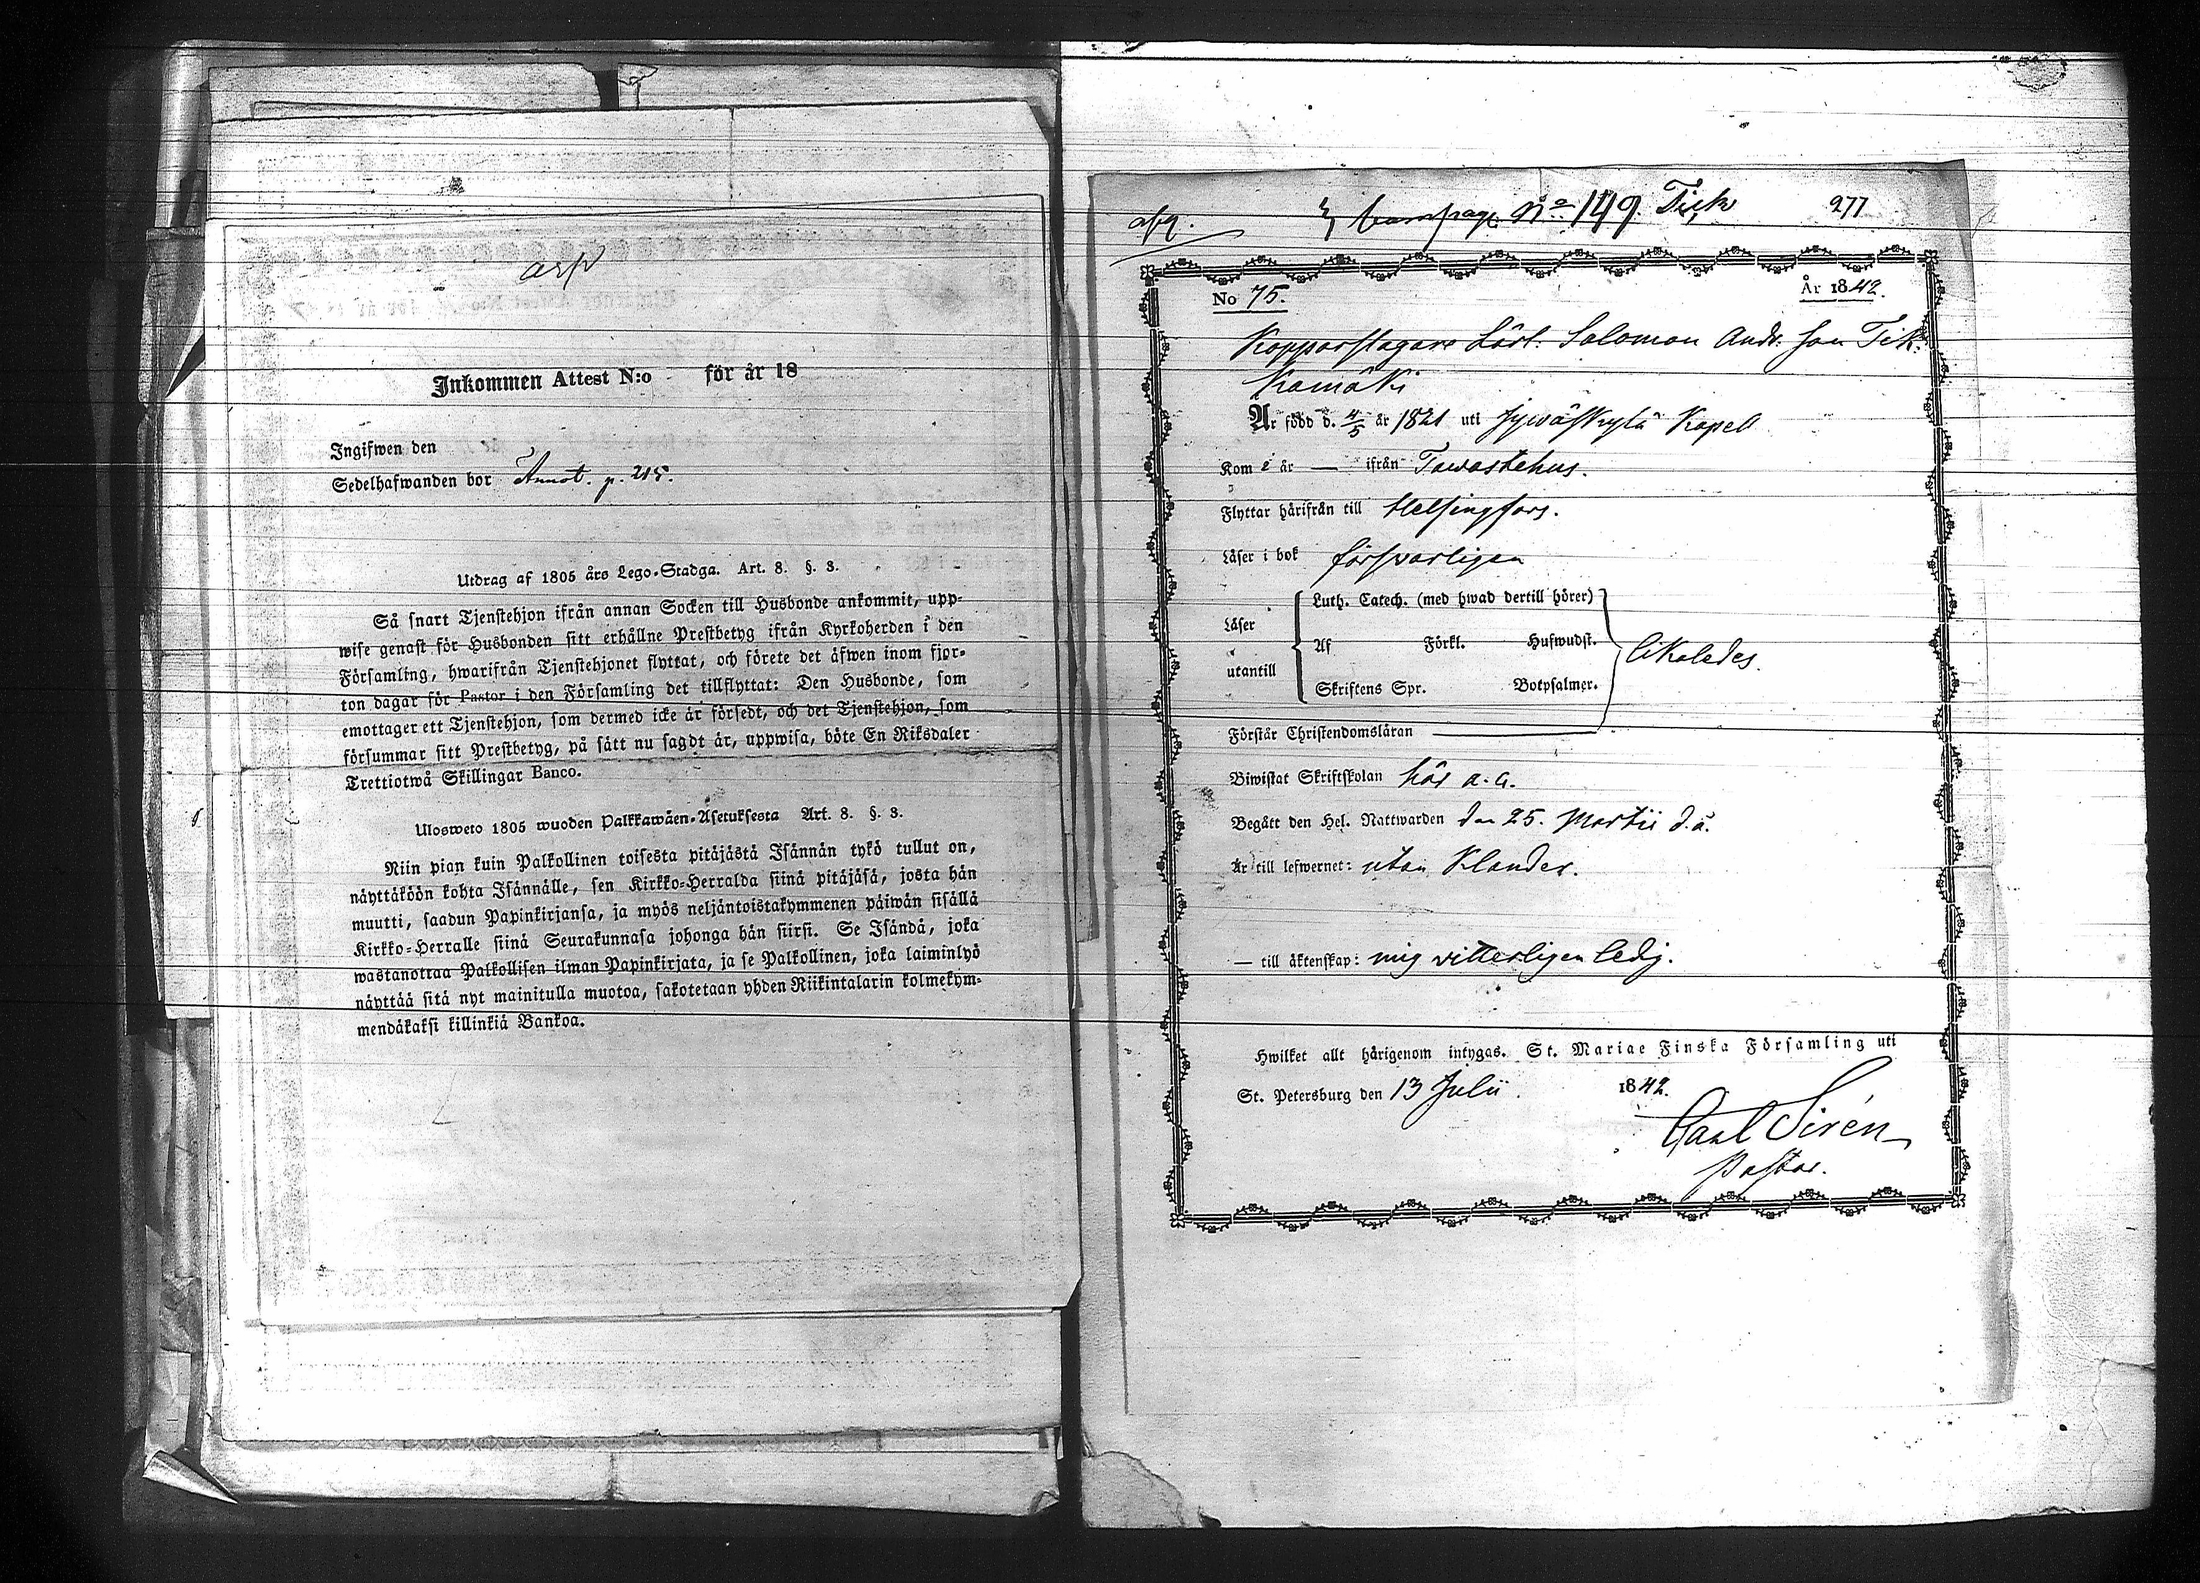 Inkommen Attest N:o för år 18
Ingifwen den
Sedelhafwanden bor Annot. p. 215.
Utdrag af 1805 års Lego-Stadga. Art. 8. §. 3.
Så snart Tjenstehjon ifrån annan Socken till Husbonde ankommit, upp-
wise genast för Husbonden sitt erhållne Prestbetyg ifrån Kyrkoherden i den
Församling, hwarifrån Tjenstehjonet flyttat, och förete det äfwen inom fjor-
ton dagar för Pastor i den Församling det tillflyttat: Den Husbonde, som
emottager ett Tjenstehjon, som dermed icke är försedt, och det Tjenstehjon, som
försummar sitt Prestbetyg, på sätt nu sagdt är, uppwisa, böte En Riksdaler
Trettiotwå Skillingar Banco.
Ulosweto 1805 wuoden Palkkawäen-Asetuksesta Art. 8. §. 3.
Niin pian kuin Palkollinen toisesta pitäjästä Isännän tykö tullut on,
näyttäköön kohta Isännälle, sen Kirkko-Herralda siinä pitäjäsä, josta hän
muutti, saadun Papinkirjansa, ja myös neljäntoistakymmenen päiwän sisällä
Kirkko-Herralle siinä Seurakunnasa johonga hän siirsi. Se Isändä, joka
wastanottaa Palkollisen ilman Papinkirjata, ja se Palkollinen, joka laiminlyö
näyttää sitä nyt mainitulla muotoa, sakotetaan yhden Riikintalarin kolmekym-
mendäkaksi killinkiä Bankoa.
afg. No 149. Tick 277
No 75. År 1842.
Kopparslagare Lärl. Salomon Andr. son Tik-
kamäki
Är född d. 4/5 år 1821 uti Jywäskylä Kapell
Kom år — ifrån Tawastehus.
Flyttar härifrån till Helsingfors.
Läser i bok försvarligen
Läser
utantill
Luth. Catech. (med hwad dertill hörer)
Af Förkl. Hufwudst.
Skriftens Spr. Botpsalmer.
likaledes.
Förstår Christendomsläran
Biwistat Skriftskolan här a. a.
Begått den Hel. Nattwarden den 25. Martii d. å.
Är till lefwernet: utan Klander.
— till äktenskap: mig vitterligen ledig.
Hwilket allt härigenom intygas. St. Mariae Finska Församling uti
St. Petersburg den 13 Julii. 1842.
Carl Sirén
Pastor.